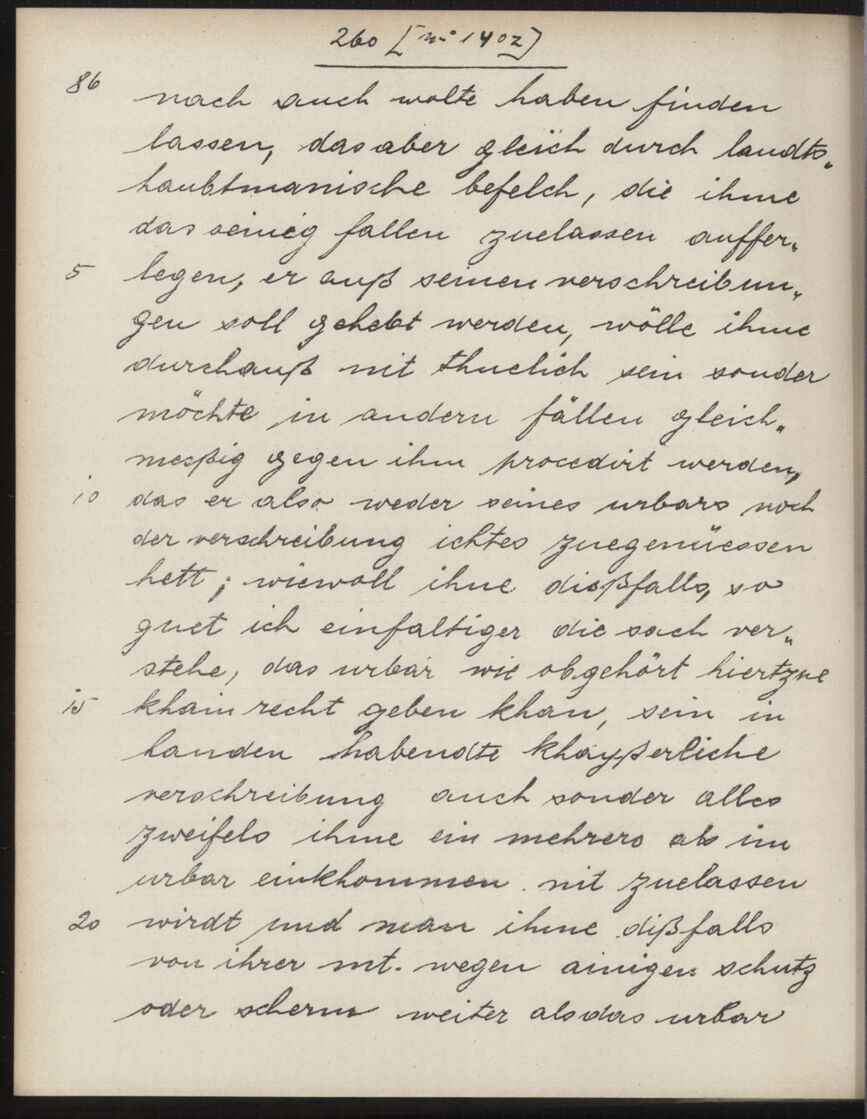 260 [No 1402]
86
nach auch wolte haben finden
lassen, das aber gleich durch landts„
haubtmanische befelch, die ihme
das seinig fallen zuelassen auffer„
5 legen, er auß seinen verschreibun„
gen soll gehebt werden, wölle ihme
durchauß nit thuelich sein sonder
möchte in andern fällen gleich„
meßig gegen ihm procedirt werden,
10 das er also weder seines urbars noch
der verschreibung ichtes zuegenüessen
hett; wiewoll ihne dißfalls, so
guet ich einfaltiger die sach ver„
stehe, das urbar wie obgehört hiertzue
15 khain recht geben khan, sein in
handen habendte khayßerliche
verschreibung auch sonder alles
zweifels ihme ein mehrers als im
urbar einkhommen nit zuelassen
20 wirdt und man ihme dißfalls
von ihrer mt. wegen ainigen schutz
oder scherm weiter als das urbar